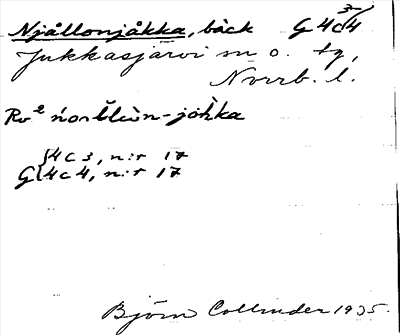 Njållonjåkka, bäck G 4c 3-4
Jukkasjärvi sn o. tg,
Norrb. l.
Rv²
{4C3, n:r 17
G{4c4, n:r 17
Björn Collinder 1935.